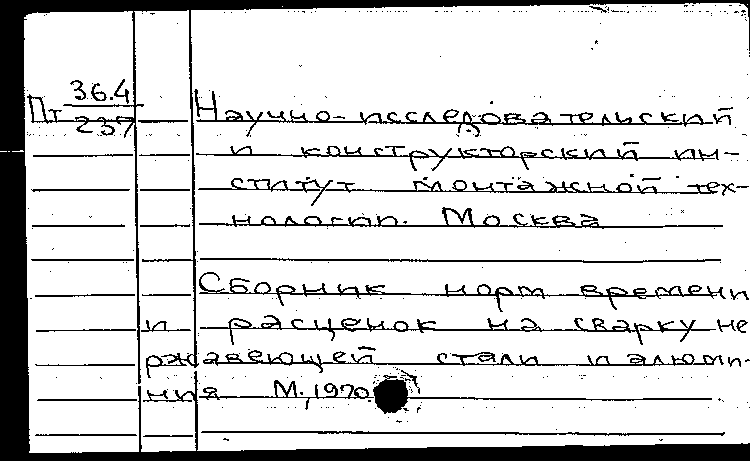 Пт 36.4
237
Научно-исследовательский
и конструкторский ин-
ститут монтажной тех-
нологии. Москва
Сборник норм времени
и расценок на сварку не
ржавеющей стали и алюми-
ния М., 1970